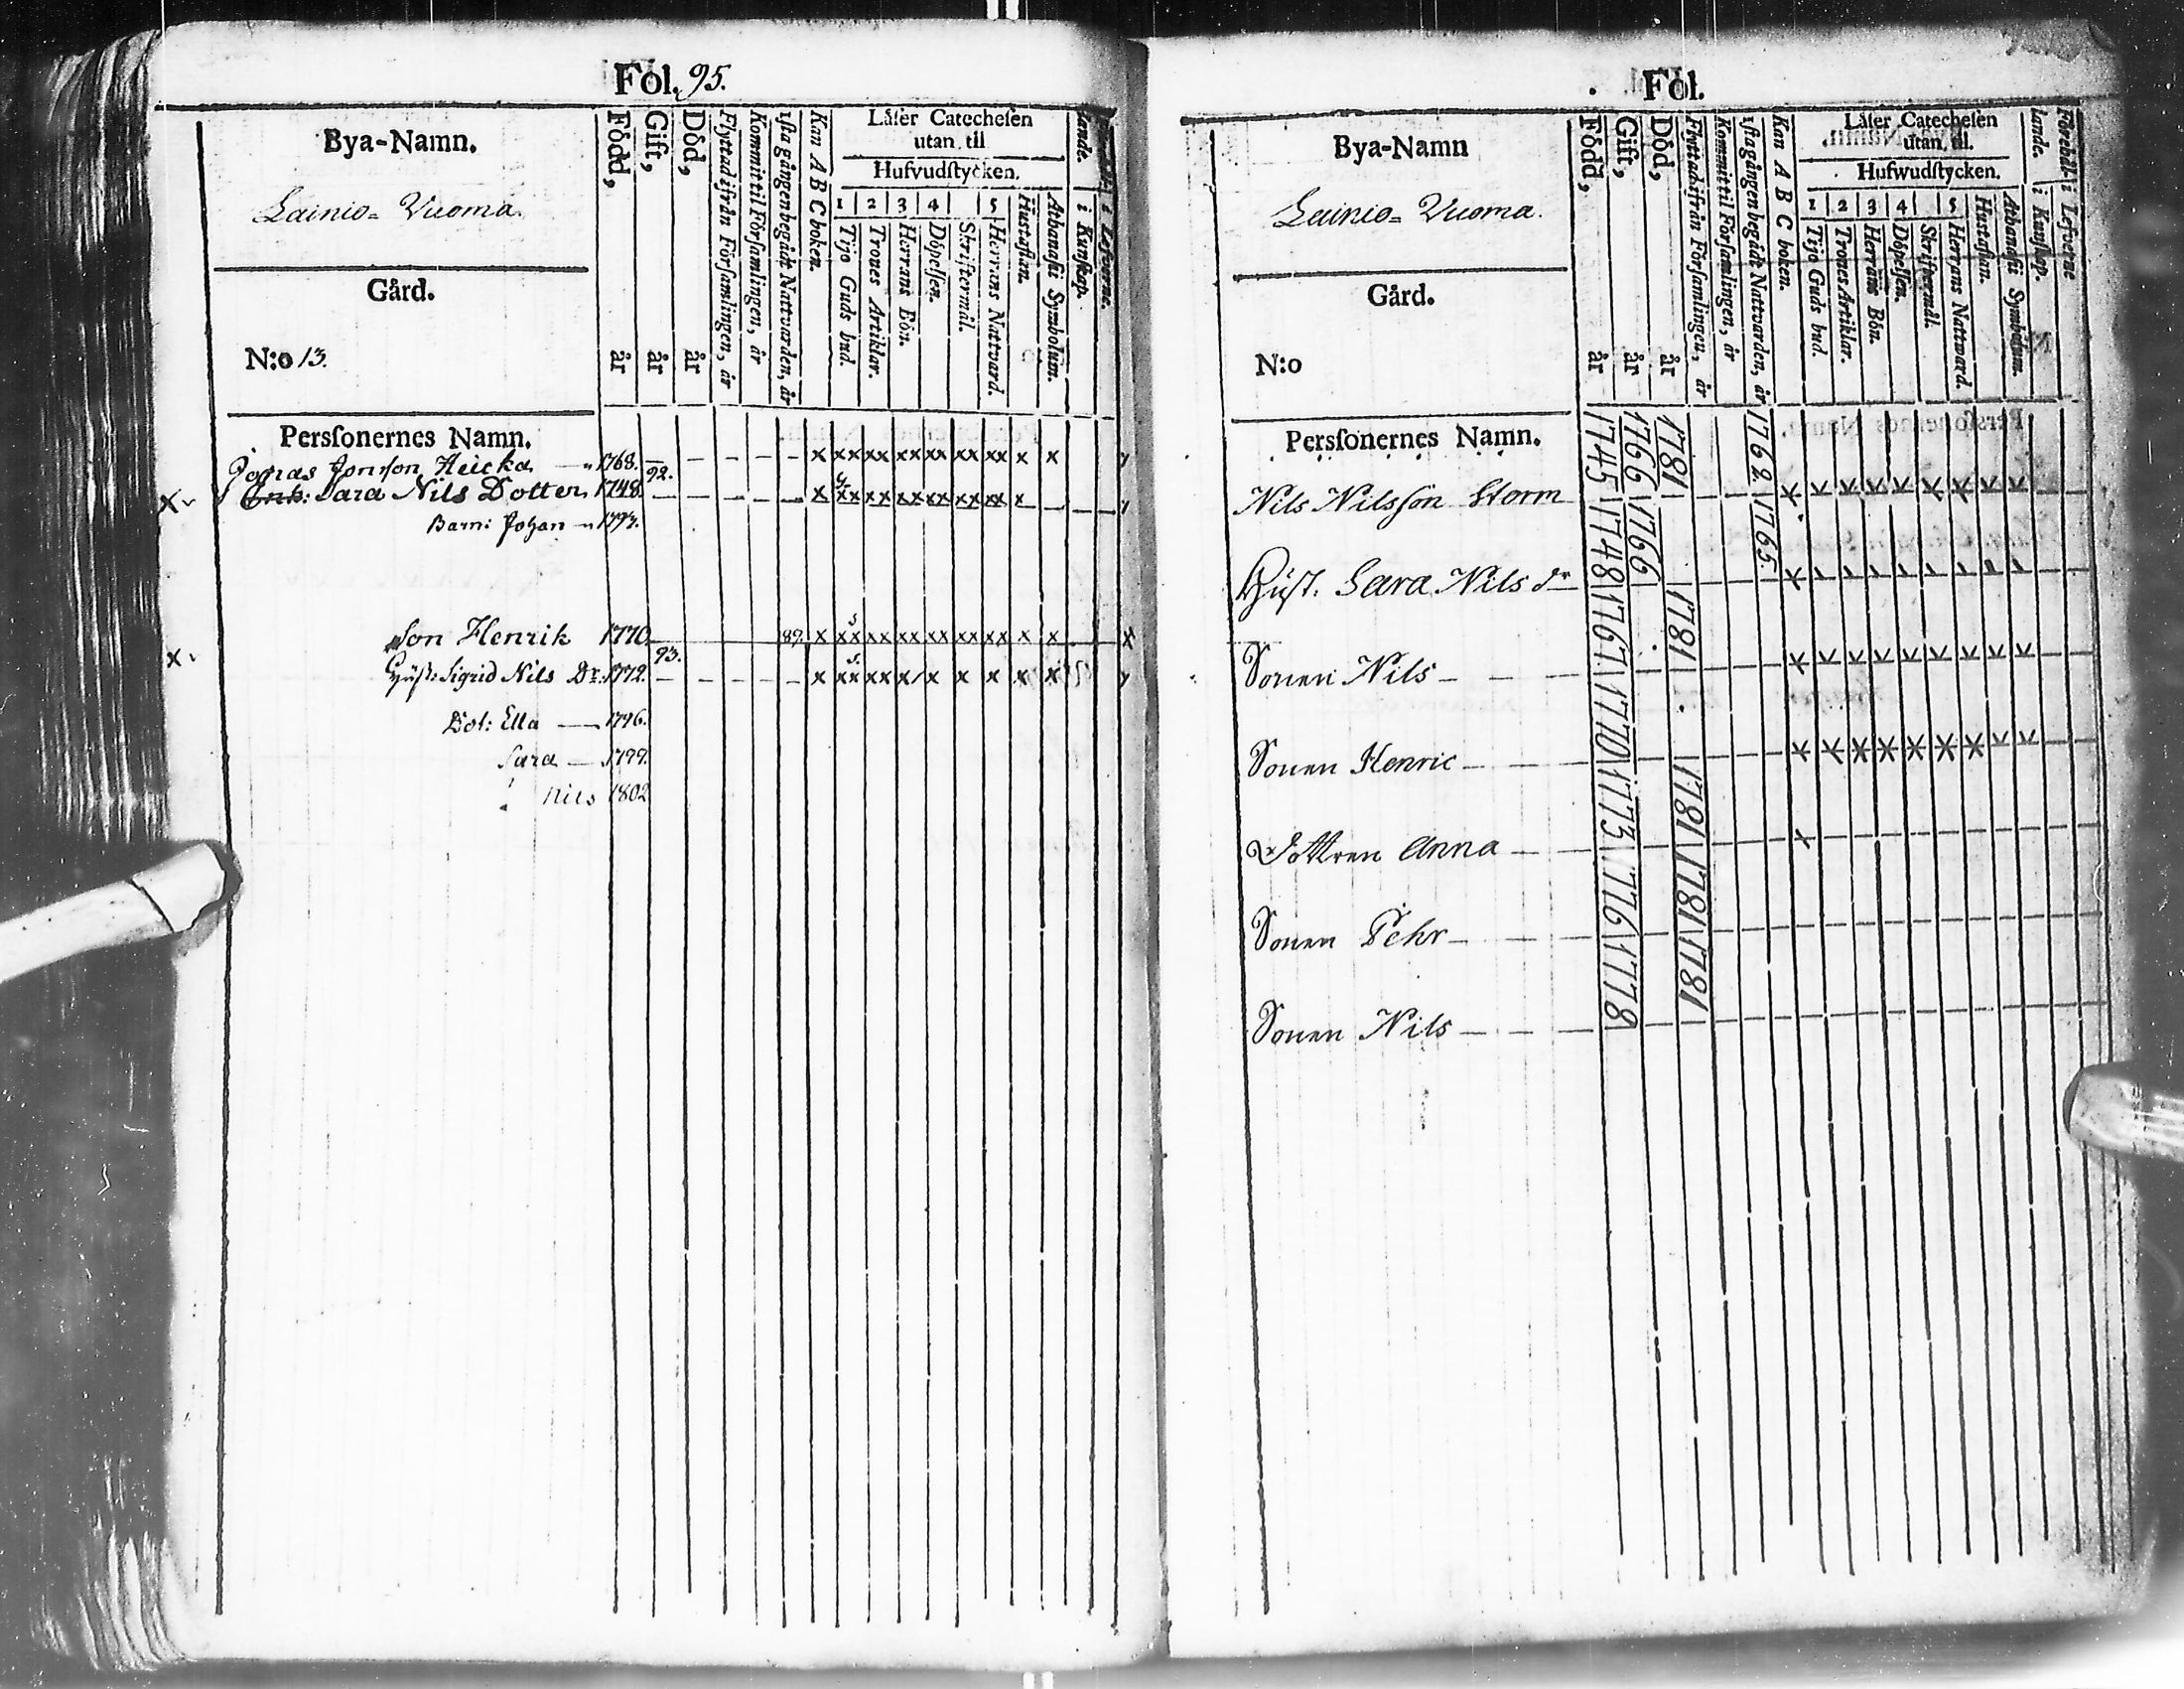 Fol. 95.
Bya-Namn.
Lainio= Vuoma.
Gård.
N:o 13.
Född, år
Gift, år
Död, år
Flyttad ifrån Församlingen, år
Kommit til Församlingen, år
1sta gången begådt Nattvarden, år
Kan A B C boken.
Låser Catechesen
utan til
Hufvudstycken.
1 2 3 4 5
Tijo Guds bud.
Trones Artiklar.
Herrans Bön.
Döpelsen.
Skriftermål.
Herrans Nattvard.
Hustaflan.
Athanasii Symbolum.
i Kunskap.
i Lefverne.
Persſonernes Namn.
Jonas Jonsson Heicka — " 1768. — — — — — x xx xx xx xx xx xx x x
x Enk: Sara Nils Dotter 1748. 92. — — — — x xx xx xx xx xx xx x
Barn: Johan — " 1793.
Son Henrik 1770. 89. x xx xx xx xx xx xx x x x
x Hust: Sigrid Nils Dr. 1772. 93. — — — — x xx xx x/x x x x x
Dot: Ella — 1796.
Sara — 1799.
Nils 1802
Fol.
Bya-Namn
Lainio= Vuoma.
Gård.
N:o
Född, år
Gift, år
Död, år
Flyttad ifrån Församlingen, år
Kommit til Församlingen, år
1sta gången begådt Nattvarden, år
Kan A B C boken.
Låser Catechesen
utan til.
Hufwudstycken.
1 2 3 4 5
Tijo Guds bud.
Trones Artiklar.
Herrans Bön.
Döpelsen.
Skriftermål.
Herrans Nattward.
Hustaflan.
Athanasii Symbolum.
i Kunskap.
i Lefverne
Persſonernes Namn.
Nils Nilsson Storm 1745 1766 1781 1762
Hust. Sara Nils dr 1748 1766 1765.
Sonen Nils — — 1767 1781
Sonen Henric — — 1770
Dottren Anna — — 1773 1781
Sonen Pehr — — 1776 1781
Sonen Nils — — 1778 1781